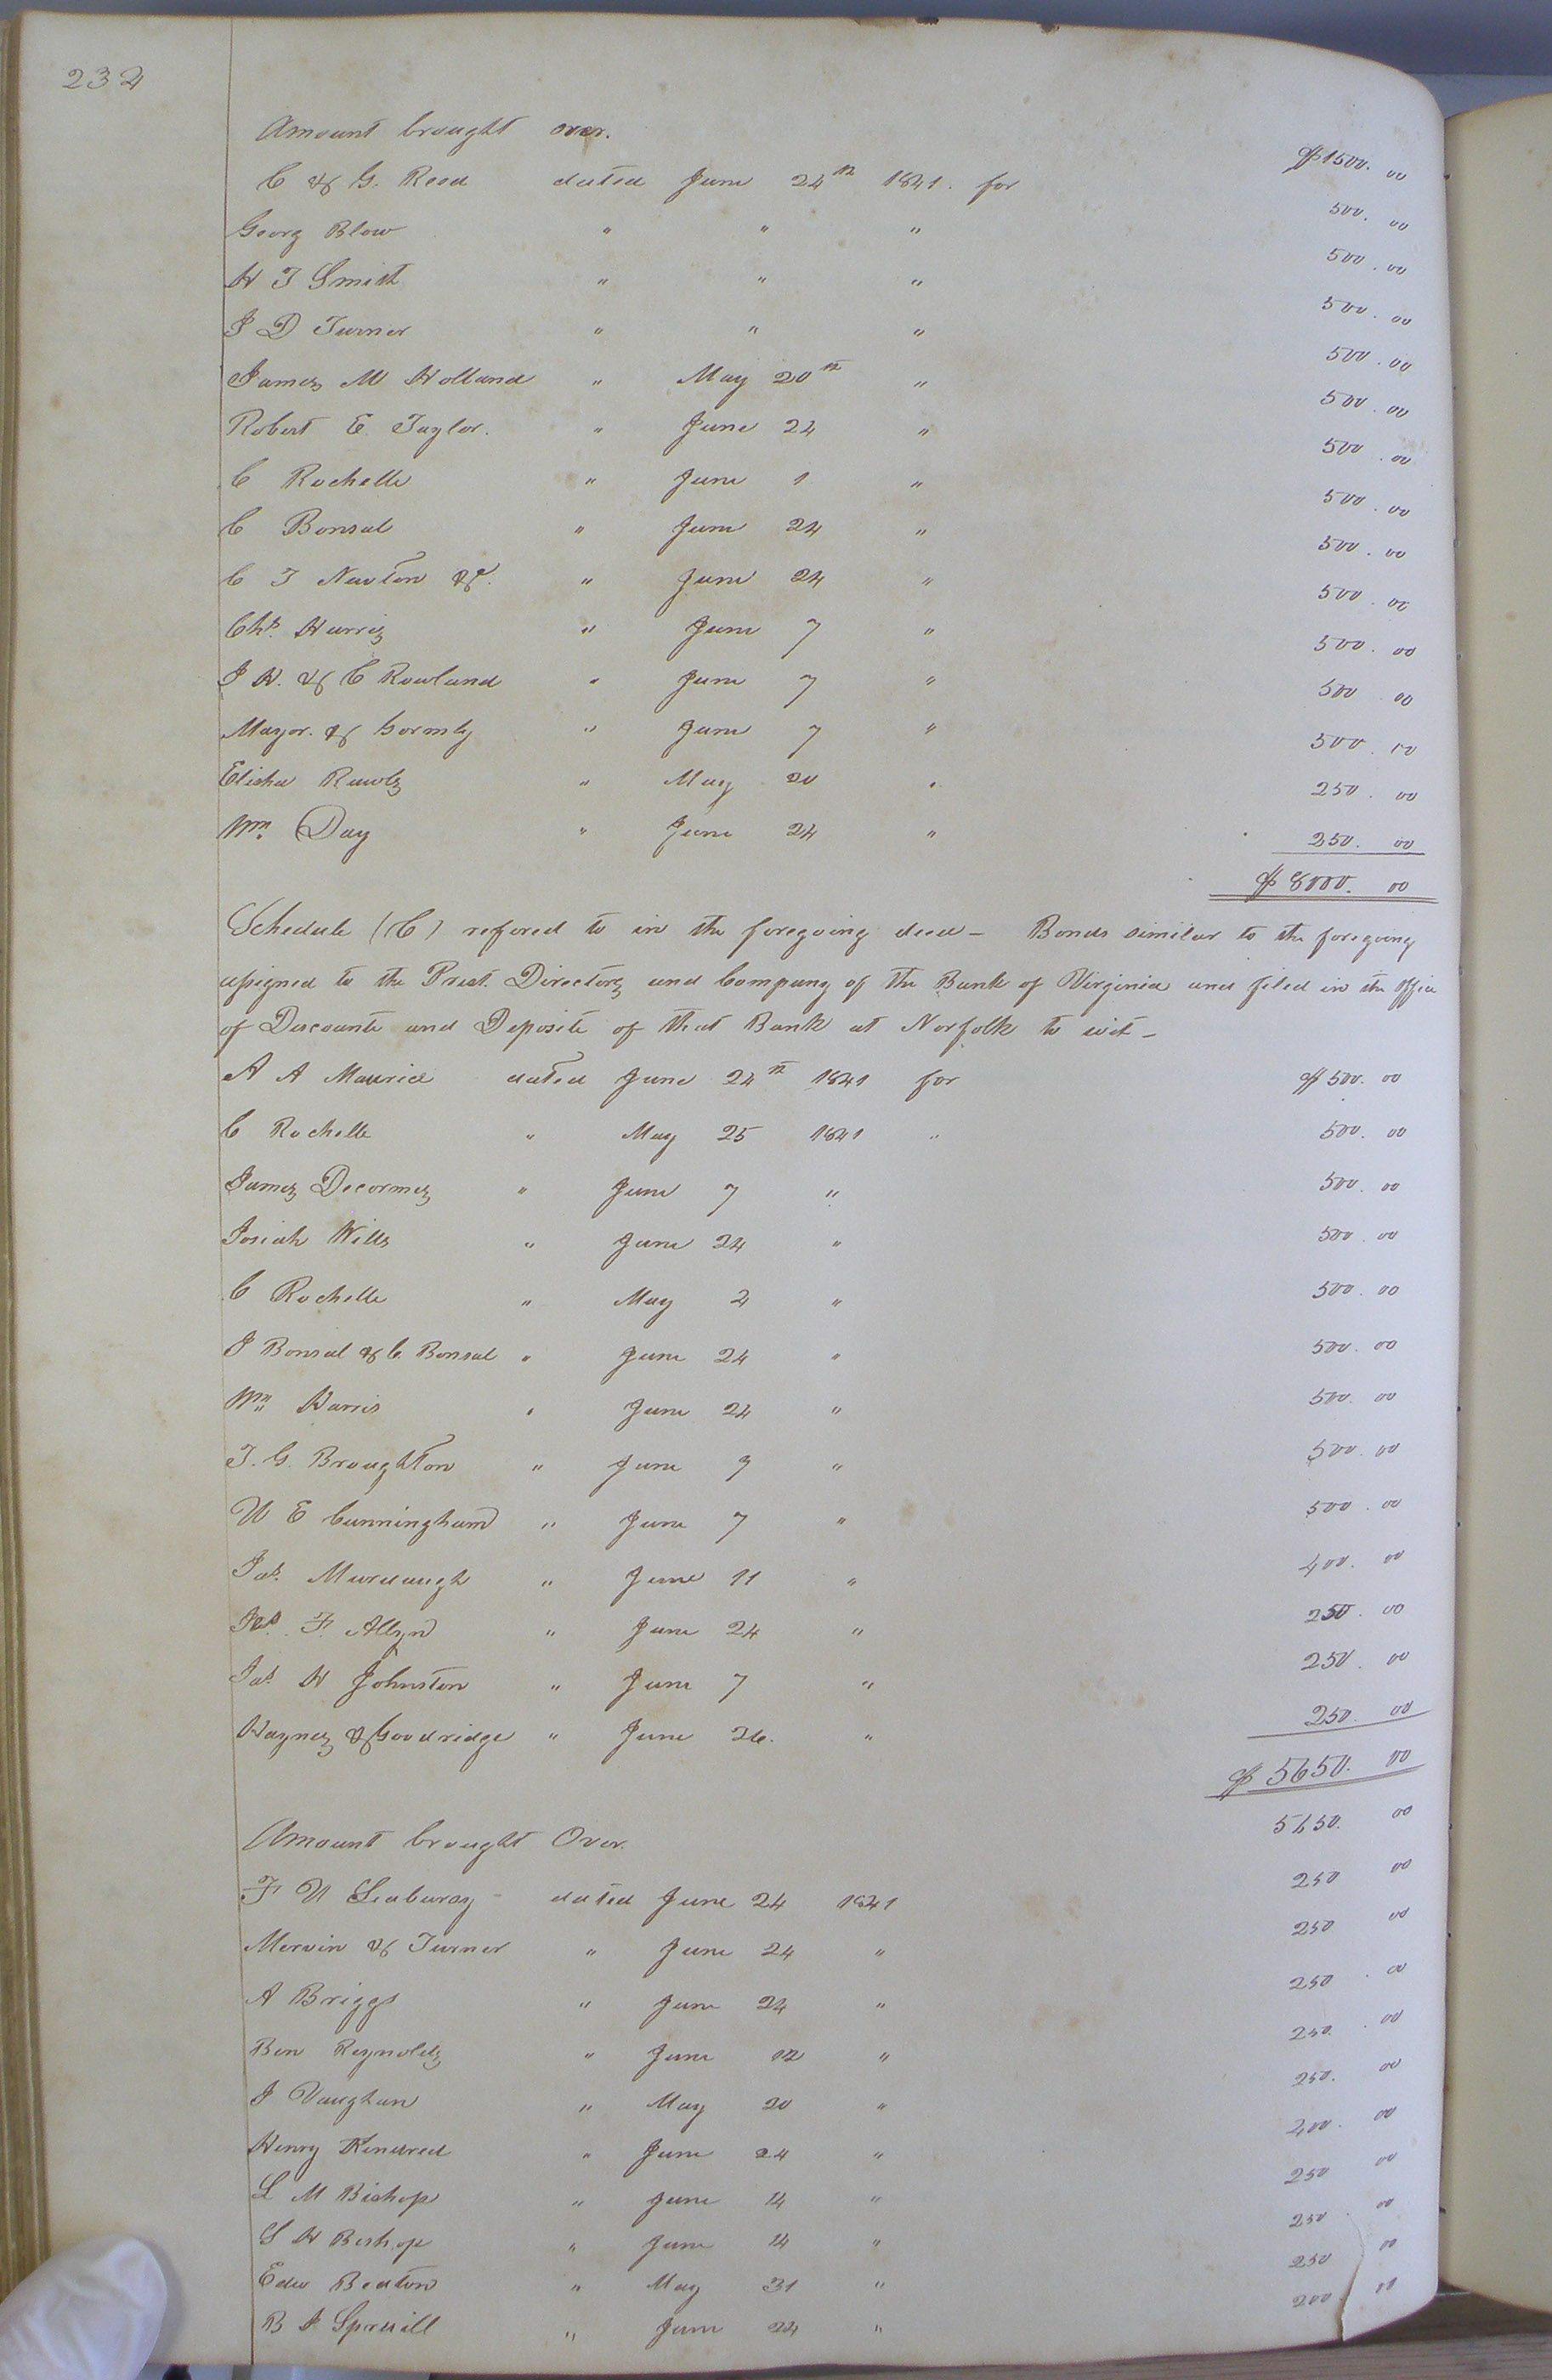 232
Amount brought over. $1500.00
C & G. Reed dated June 24th 1841. for 500.00
Georg Blow " " " 500.00
W T Smith " " " 500.00
J D Turner " " " 500.00
James M Holland " May 20th " 500.00
Robert E. Taylor. " June 24 " 500.00
C Rochelle " June 1 " 500.00
C Bonsal " June 24 " 500.00
C T Newton &c. " June 24 " 500.00
Chs. Harris " June 7 " 500.00
J H. & C Rowland " June 7 " 500 00
Mayor. & Gormly " June 7 " 500.00
Elisha Rawls " May 20 " 250.00
Wm. Day " June 24 " 250.00
$8000.00
Schedule (C) refered to in the foregoing deed - Bonds similar to the foregoing
assigned to the Prest. Directors and Company of the Bank of Virginia and filed in the Office
of Discount and Deposite of that Bank at Norfolk to wit -
A A Maurice dated June 24th 1841 for $500.00
C Rochelle " May 25 1841 " 500.00
James Decormes " June 7 " 500.00
Josiah Wills " June 24 " 500.00
C Rochelle " May 2 " 500.00
J Bonsal & C. Bonsal " June 24 " 500.00
Wm. Harris " June 24 " 500.00
T. G. Broughton " June 7 " 500.00
W E Cunningham " June 7 " 500.00
Jas. Murdaugh " June 11 " 400.00
F. Allyn " June 24 " 250.00
Jas. H Johnston " June 7 " 250.00
Haynes & Goodridge " June 26. " 250.00
$5650.00
Amount brought Over. 5650.00
F W Seabury dated June 24 1841 250 00
Mervin & Turner " June 24 " 250 00
A Briggs " June 24 " 250.00
Ben Reynolds " June 12 " 250.00
J Vaughan " May 20 " 250.00
Henry Kindred " June 24 " 200.00
L M Bishop " June 14 " 250 00
S W Bishop " June 14 " 250.00
Edw Beaton " May 31 " 250 00
B J Spruill " June 24 " 200 00